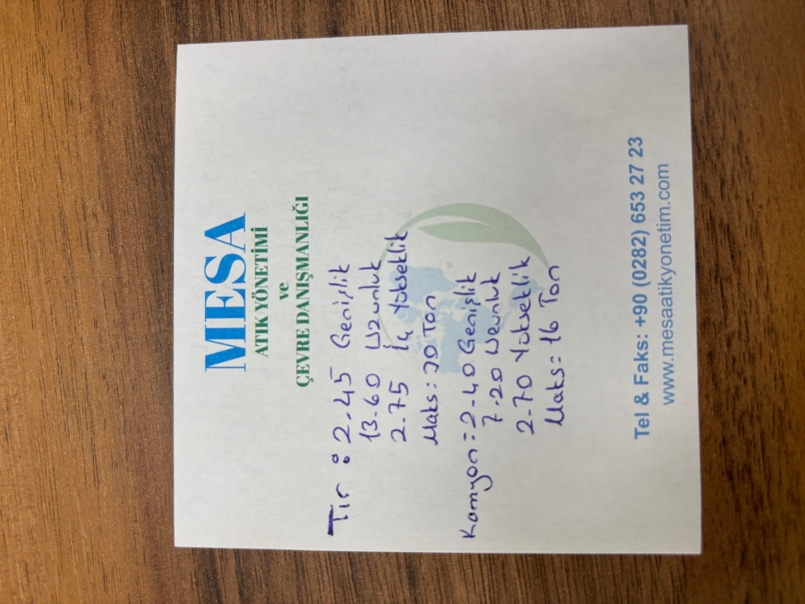 MESA
ATIK YÖNETİMİ
ve
ÇEVRE DANIŞMANLIĞI
Tır : 2.45 Genişlik
13.60 Uzunluk
2.75 İç Yükseklik
Maks: 20 Ton
Kamyon: 2.40 Genişlik
7.20 Uzunluk
2.70 Yükseklik
Maks: 16 Ton
Tel & Faks: +90 (0282) 653 27 23
www.mesaatikyonetim.com